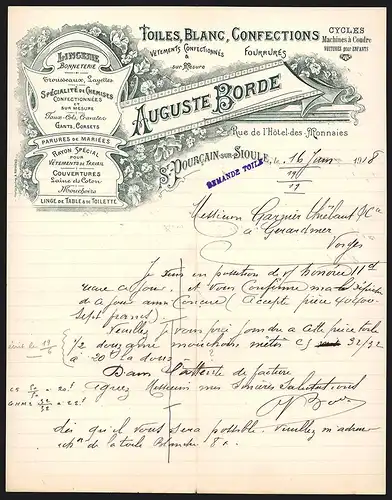 LINGERIE
BONNETERIE
Trousseaux, Layettes
SPÉCIALITÉ DE CHEMISES
CONFECTIONNÉES
ET
SUR MESURE
Faux-Cols, Cravates
GANTS, CORSETS
PARURES DE MARIÉES
RAYON SPÉCIAL
POUR
VÊTEMENTS DE TRAVAIL
COUVERTURES
Laine & Coton
Mouchoirs
LINGE DE TABLE & DE TOILETTE
TOILES, BLANC, CONFECTIONS
VÊTEMENTS CONFECTIONNÉS
&
SUR MESURE
FOURRURES
CYCLES
Machines à Coudre
VOITURES POUR ENFANTS
AUGUSTE BORDE
Rue de l'Hôtel-des-Monnaies
ST POURÇAIN-SUR-SIOULE, le 16 Juin 1918
DEMANDE TOILE
Messieurs Garnier Thiébaut & Cie
à Gérardmer
Vosges
Je suis en possession de v/ honorée 11 ct
et vous confirme ma
à ce jour
sept francs)
Veuillez je vous prie joindre à cette pièce toile
1/2 douzaine mouchoirs 32/32
à 20 la douz
Dans l'attente de facture
agréez Messieurs mes sincères salutations
dès qu'il vous sera possible. veuillez m'adresser
de la toile blanche 80